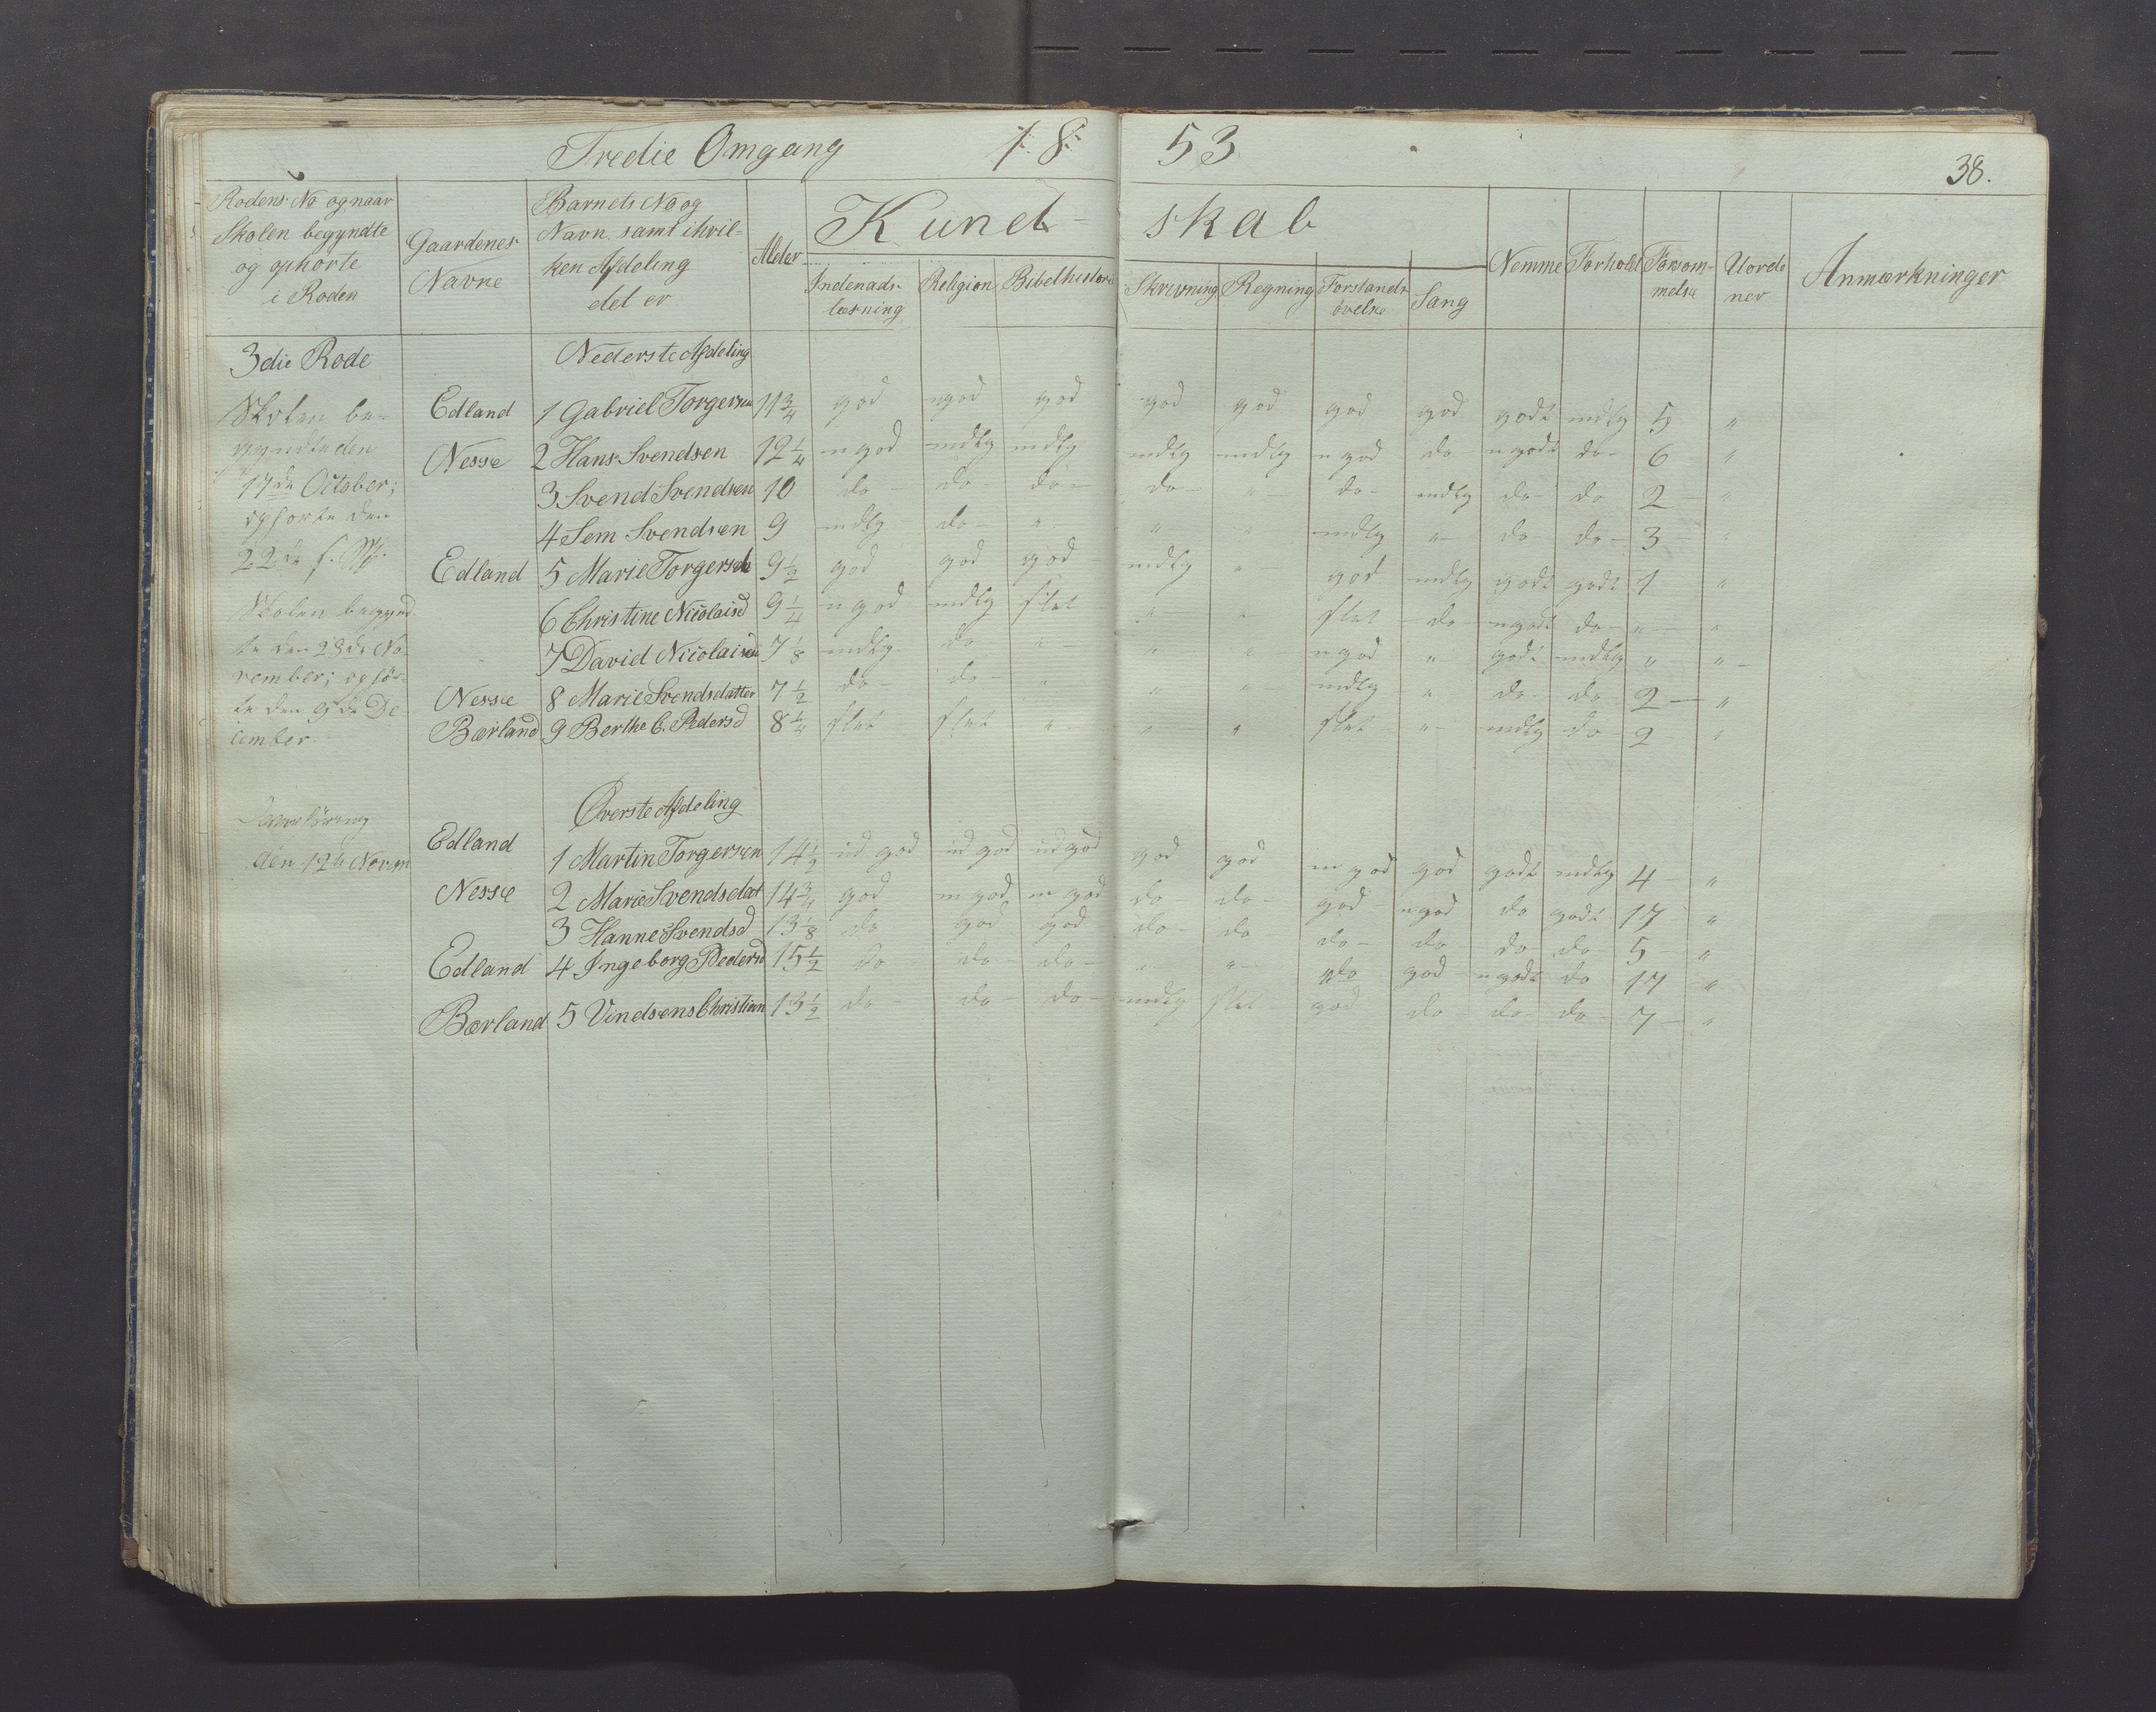 Tredie Omgang 18 53
38.
Rodens No og naar Skolen begyndte og ophørte i Roden
Gaardenes Navne
Barnets No og Navn samt i hvilken Afdeling det er
Alder
Kundskab
Indenadslæsning
Religion
Bibelhistorie
Skrivning
Regning
Forstandsøvelse
Sang
Nemme
Forhold
Forsømmelse
Uordener
Anmærkninger
3die Rode
Nederste Afdeling
Skolen begyndte den 17de October; ophørte den 22de
Edland 1 Gabriel Torgersen 11 3/4 god ngod god god god god god godt mdlg 5 "
Nesse 2 Hans Svendsen 12 1/4 ngod mdlg mdlg mdlg mdlg ngod do ngodt do 6 "
3 Svend Svendsen 10 do do do do " do mdlg do do 2 "
4 Sem Svendsen 9 mdlg do " " " mdlg " do do 3 "
Edland 5 Marie Torgersdr 9 1/2 god god god mdlg " god mdlg godt godt 1 "
6 Christine Nicolaisd 9 1/4 ngod mdlg slet " " slet do ngodt do " "
Skolen begyndte den 23de November; ophørte den 9de December
7 David Nicolaisen 7 1/8 mdlg do " " " ngod " godt mdlg " "
Nesse 8 Marie Svendsdatter 7 1/2 do do " " " mdlg " do do 2 "
Bærland 9 Berthe C. Pedersd 8 1/4 slet slet " " " slet " mdlg do 2 "
Øverste Afdeling
den 12te Novem
Edland 1 Martin Torgersen 14 1/2 ud god ud god ud god god god m god god godt mdlg 4 "
Nesse 2 Marie Svendsdat 14 3/4 god m god m god do do god ngod do godt 17 "
3 Hanne Svendsd 13 1/8 do god god do do do do do do 5 "
Edland 4 Ingeborg Pedersd 15 1/2 do do do " " do god ngodt do 17 "
Bærland 5 Vindsens Christian 13 1/2 do do do mdlg slet god do do do 7 "